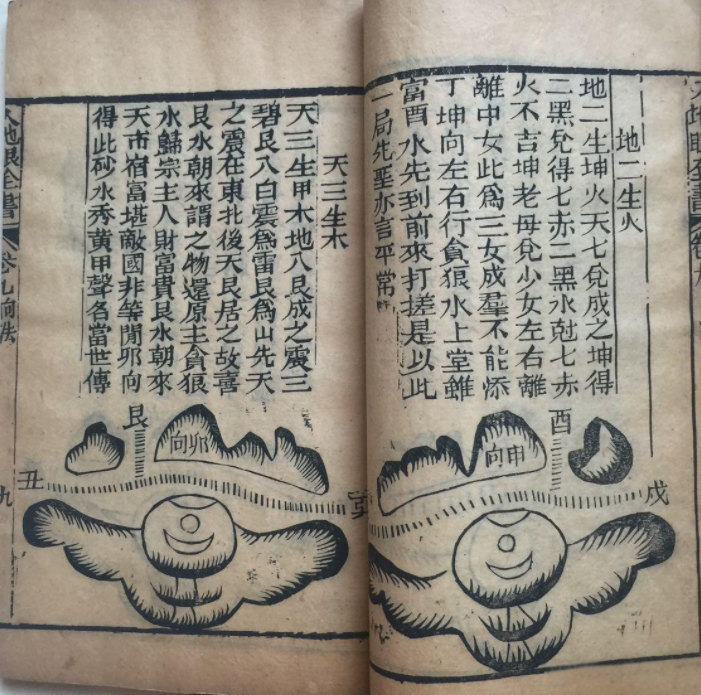 地二生火
地二生坤火天七兌成之坤得
二黑兌得七赤二黑水尅七赤
火不吉坤老母兌少女左右離
離中女此爲三女成羣不能添
丁坤向左右行貪狼水上堂雖
富酉水先到前來打搓是以此
一局先聖亦言平常
酉
申向
戌
天三生木
天三生甲木地八艮成之震三
碧艮八白震爲雷艮爲山先天
之震在東北後天艮居之故喜
艮水朝來謂之物還原主貪狼
水歸宗主人財富貴艮水朝來
天市宿富堪敵國非等閒卯向
得此砂水秀黃甲聲名當世傳
艮
卯向
丑
卷九向法
九